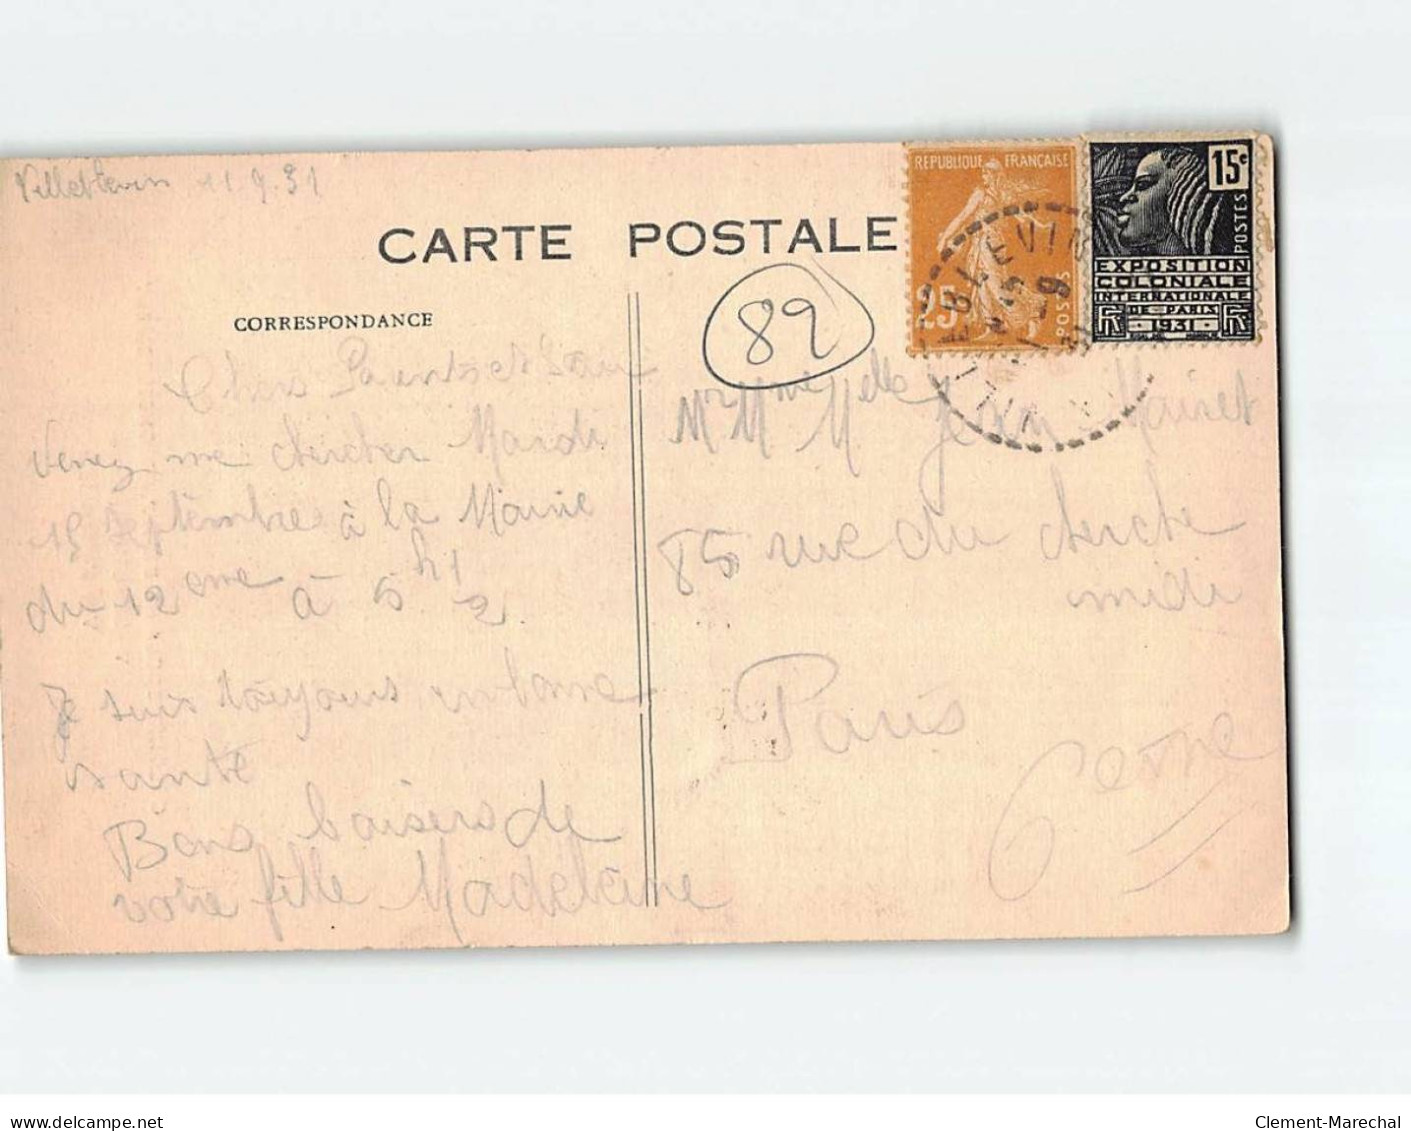 Villeblevin 11 9.31
CARTE POSTALE
CORRESPONDANCE
89
RÉPUBLIQUE FRANÇAISE
25c
POSTES
15c
POSTES
EXPOSITION
COLONIALE
INTERNATIONALE
DE PARIS
1931
VILLEBLEVIN
Chers Parents et
venez me chercher Mardi
15 septembre à la Mairie
du 12eme à 5 h 1/2
Je suis toujours en bonne
santé
Bons baisers de
votre fille Madeleine
Mr Mme Melle Jean Mairet
85 rue du cherche
midi
Paris
6eme
Clement-Marechal
www.delcampe.net